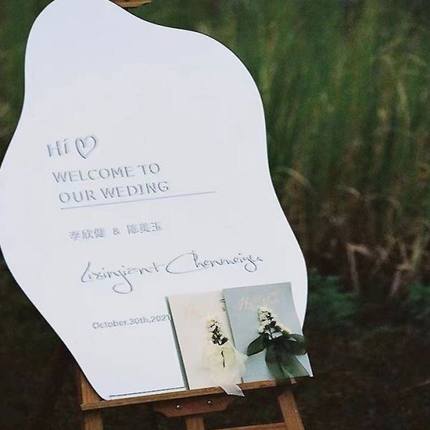 Hi
WELCOME TO
OUR WEDING
李欣健 & 陈美玉
Lixinjian & Chenmeiyu
October.30th,2021